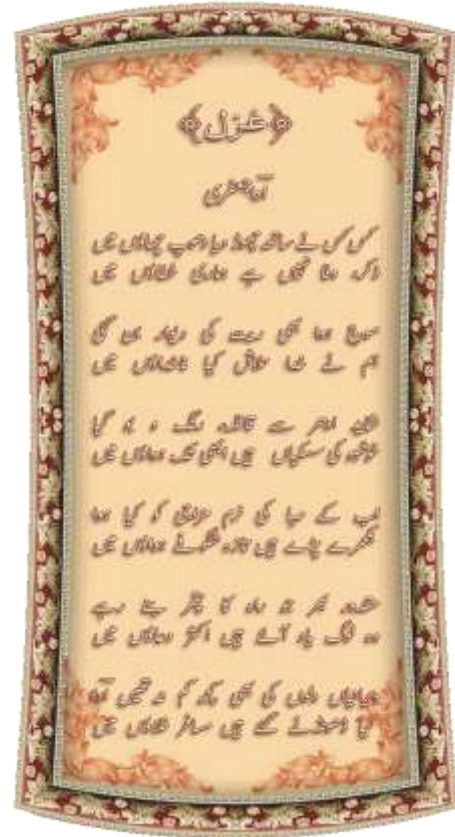 غزل
ادا جعفری
کس کس نے ساتھ چھوڑ دیا دھوپ چھاؤں میں
ذکر وفا نہیں ہے ہماری خطاؤں میں
موج ہوا بھی ریت کی دیوار بن گئی
ہم نے خدا تلاش کیا ناخداؤں میں
شاید ادھر سے قافلہ رنگ و بو گیا
خوشبو کی سسکیاں ہیں ابھی تک ہواؤں میں
اب کے صبا کی نرم مزاجی کو کیا ہوا
بکھرے پڑے ہیں تازہ شگوفے ہواؤں میں
عمر جو راہ کا پتھر بنے رہے
وہ لوگ یاد آئے ہیں اکثر دعاؤں میں
ویرانیاں دلوں کی بھی کچھ کم نہ تھیں ادا
کیا ڈھونڈنے گئے ہیں مسافر خلاؤں میں